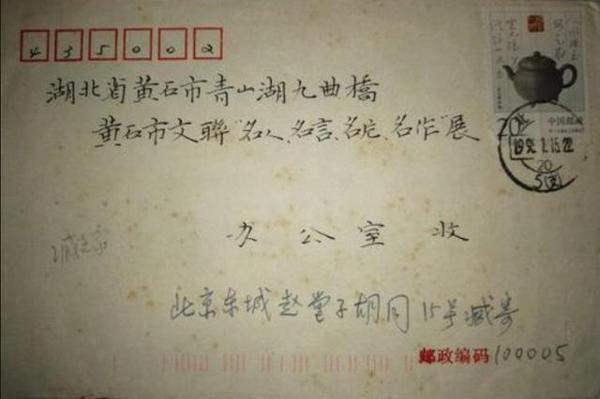 435002
湖北省黄石市青山湖九曲橋
黄石市文聯“名人.名言.名片.名作”展
办公室 收
北京东城赵堂子胡同15号臧寄
邮政编码 100005
中国邮政